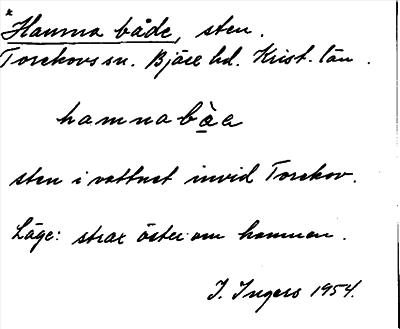 * Hamna både, sten.
Torekovs sn. Bjäre hd. Krist. län.
hamnabàa
sten i vattnet invid Torekov.
Läge: strax öster om hamnen.
I. Ingers 1954.